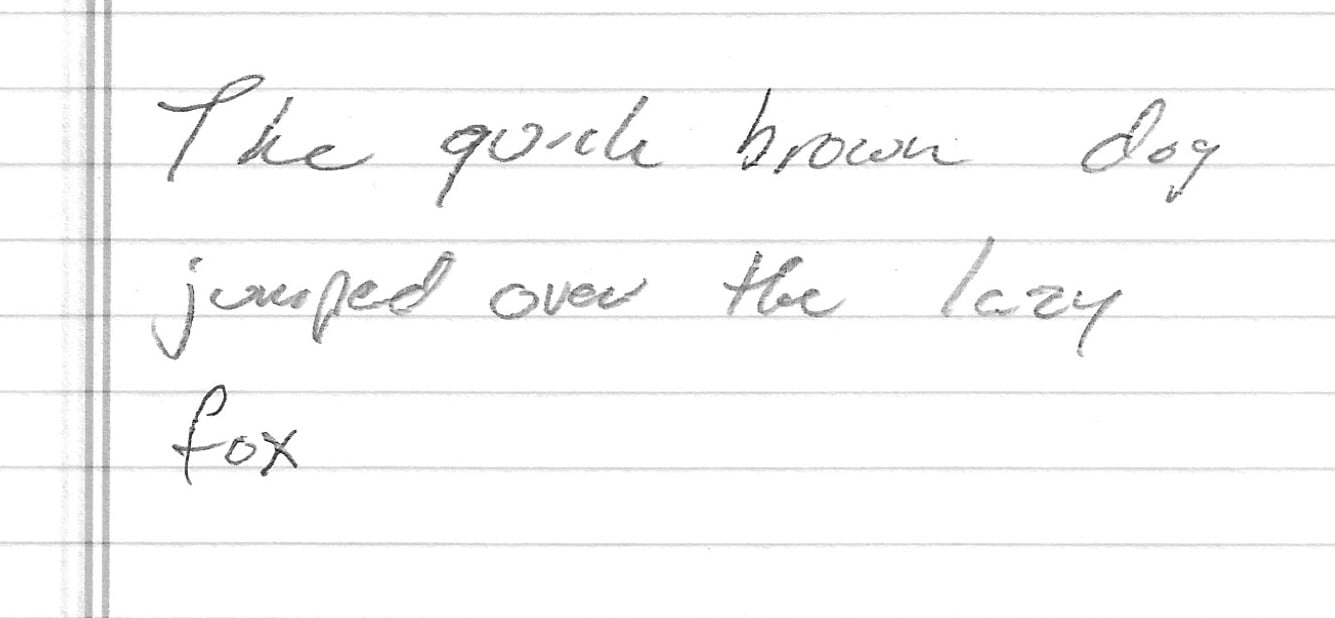 The quick brown dog
jumped over the lazy
fox